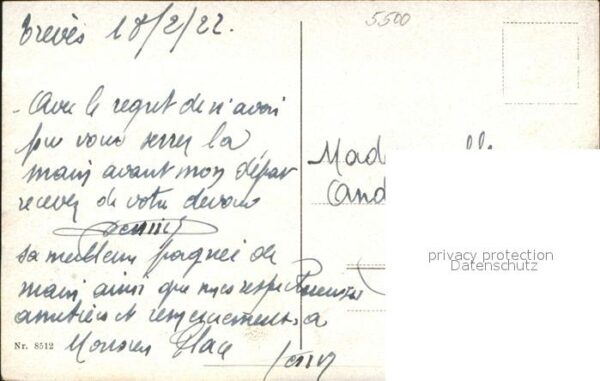 Trèves 18/2/22.
5500
- Avec le regret de n'avoir
pu vous serrer la
main avant mon départ
recevez de votre dévoué
sa meilleure poignée de
main, ainsi que mes respectueuses
amitiés et remerciements, a
Monsieur
Nr. 8512
privacy protection
Datenschutz